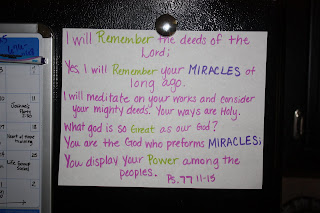 I will Remember the deeds of the
Lord;
Yes, I will Remember your MIRACLES of
long ago.
I will meditate on your works and consider
your mighty deeds. Your ways are Holy.
What god is so Great as our God?
You are the God who preforms MIRACLES;
You display your Power among the
peoples. Ps. 77 11-15